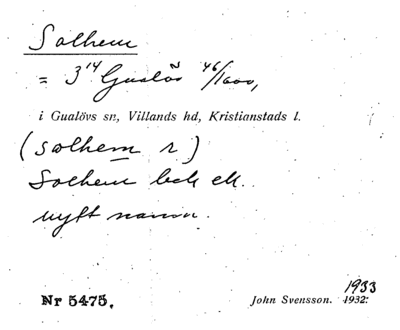 Solhem
= 3¹⁴ Gualöv 46/1600,
i Gualövs sn, Villands hd, Kristianstads l.
(solhem r)
Solhem
nytt namn.
1933
Nr 5475. John Svensson. 1932.